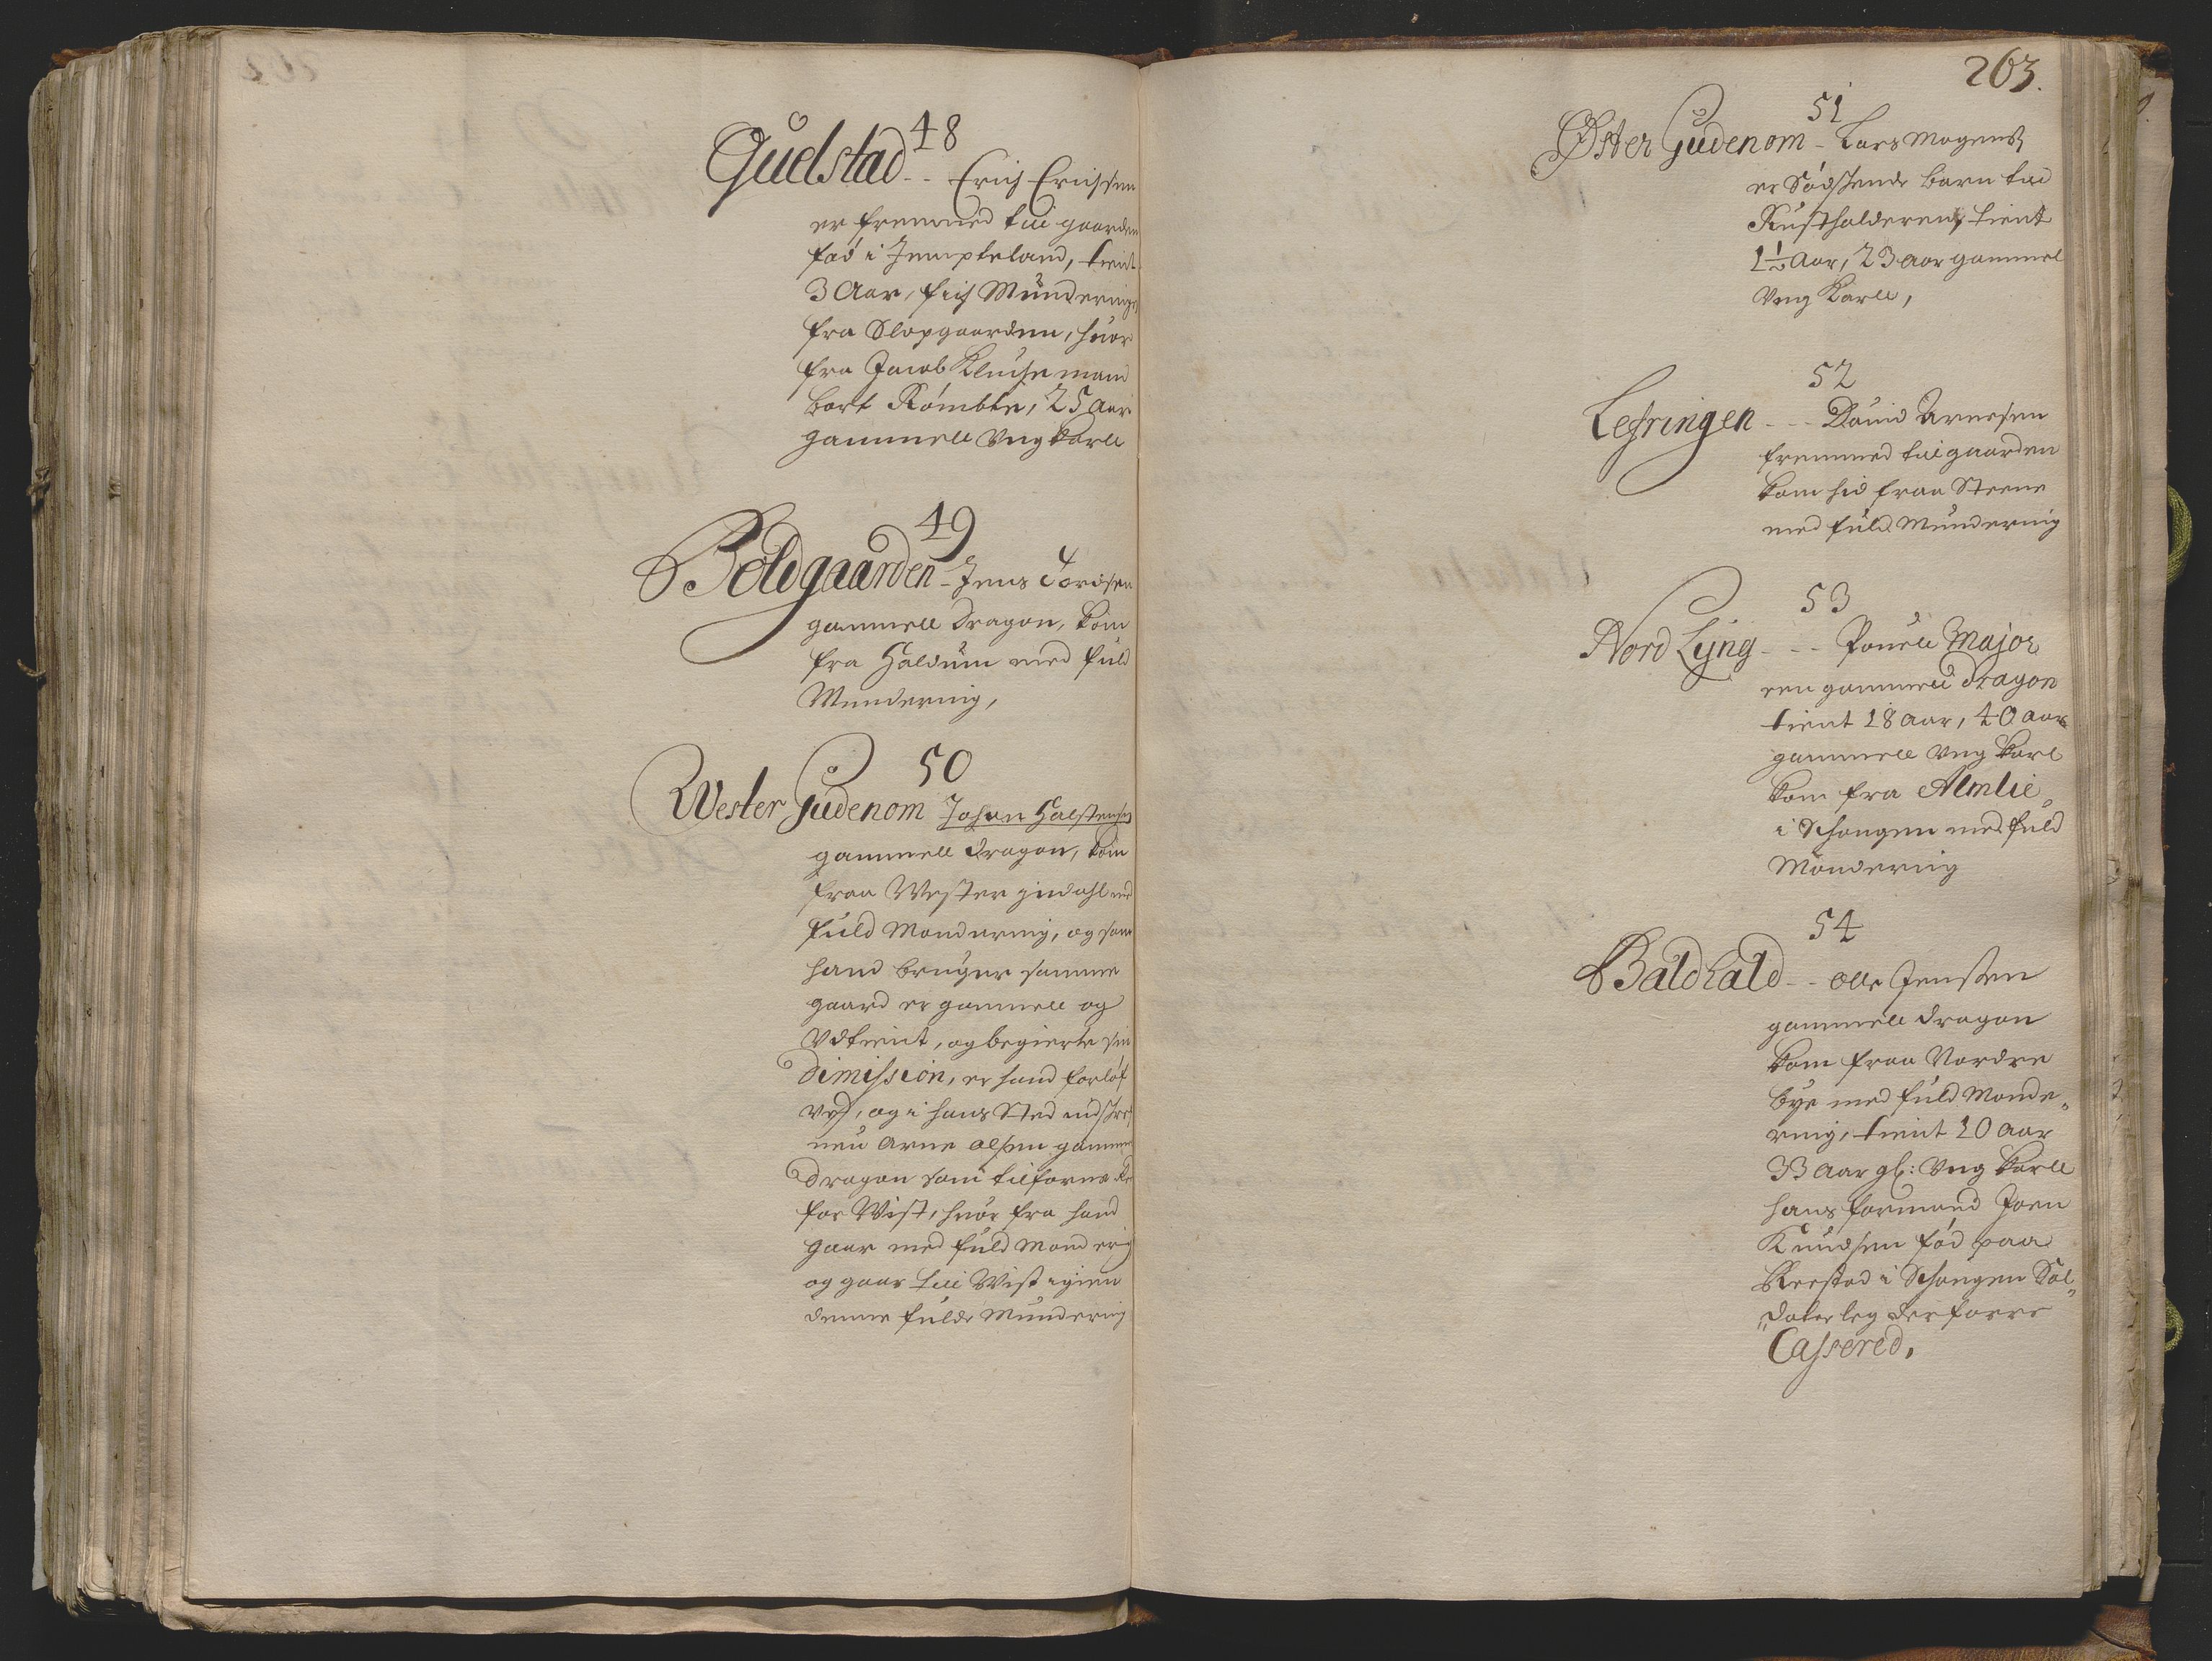 48
Quelstad - - Erich Erichsen
er fremmed till gaarden
fød i Jempteland, tient
3 Aar, fich Munderings
fra Slopgaarden, huor
fra Jacob mand
bort Rømbte, 25 Aar
gammell Ung Karll
49
Boldgaarden - Jens Tordsen
gammell Dragon, kom
fra Haldum med fuld
Mundering,
50
Wester Gudenom Johan Halstensen
gammell dragon, kom
fraa Wester med
fuld Mondering, og som
hand bruger samme
gaard er gammell og
Udtient, og begierte sin
Dimission, er hand forløf
vet, og i hans Sted indschref
neu Arne Olsen gammel
Dragon som tilforne
for Wist, huor fra hand
gaar med fuld Mondering
og gaar till Wist igien
denne fulde Mundering
263.
51
Øster Gudenom - Lars Mogens
er Sødschende barn till
Rustholderen, tient
1½ Aar, 23 Aar gammel
Ung Karll,
52
Lesringen - - - David Arnesen
fremmed till gaarden
kom hid fraa Steene
med fuld Mundering
53
Nord Lyng - - - Pouell Major
een gammell dragon
tient 18 Aar, 40 aar
gammell Ung Karl
kom fra Almlie
i Schongen med fuld
Mondering
54
Baldhald - - Olle Jensen
gammell dragon
kom fraa Nordre
bye med fuld Monde„
ring, tient 10 Aar
33 Aar gl: Ung Karll
hans formand Joen
Knudsen fød paa
Reestad i Schongen Sol„
„dater leg derforre
Cassered,